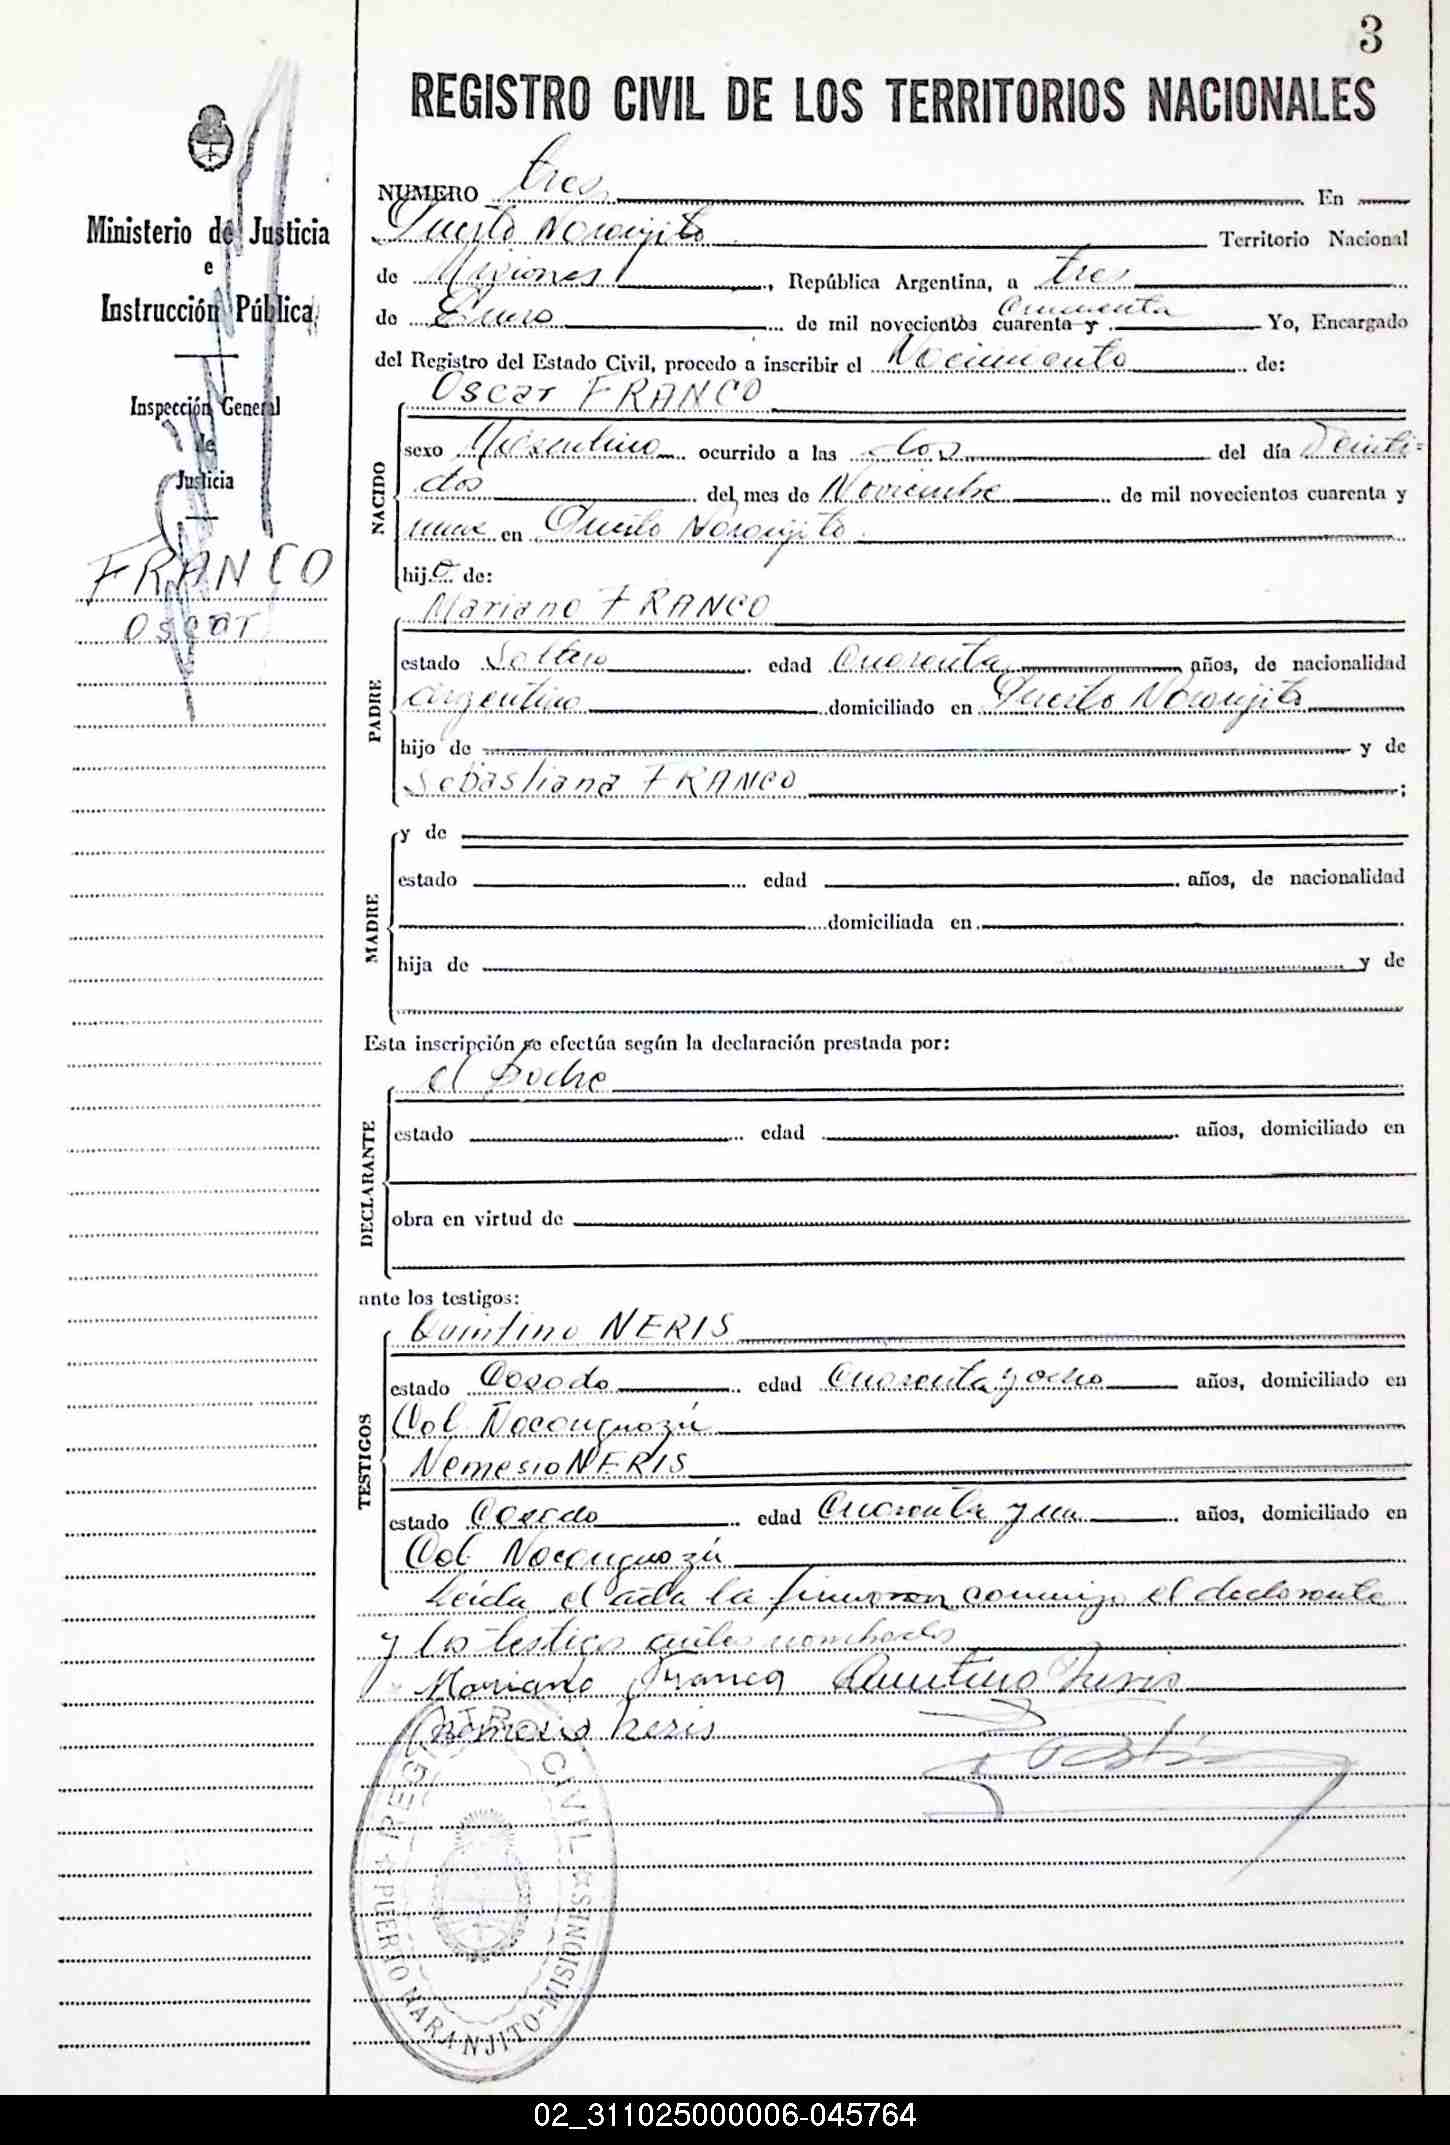 3
REGISTRO CIVIL DE LOS TERRITORIOS NACIONALES
Ministerio de Justicia
e
Instrucción Pública
Inspección General
de
Justicia
FRANCO
Oscar
NUMERO tres En
Puerto Naranjito Territorio Nacional
de Misiones, República Argentina, a tres
de Enero de mil novecientos cuarenta y cincuenta Yo, Encargado
del Registro del Estado Civil, procedo a inscribir el Nacimiento de:
NACIDO
Oscar FRANCO
sexo Masculino ocurrido a las dos del día Veinti=
dos del mes de Noviembre de mil novecientos cuarenta y
nueve en Puerto Naranjito
hijo de:
PADRE
Mariano FRANCO
estado Soltero edad Cuarenta años, de nacionalidad
argentino domiciliado en Puerto Naranjito
hijo de y de
Sebastiana FRANCO ;
MADRE
y de
estado edad años, de nacionalidad
domiciliada en
hija de y de
Esta inscripción se efectúa según la declaración prestada por:
DECLARANTE
el Padre
estado edad años, domiciliado en
obra en virtud de
ante los testigos:
TESTIGOS
Quintino NERIS
estado Casado edad Cuarenta y ocho años, domiciliado en
Col. Ñacanguazú
Nemesio NERIS
estado Casado edad Cuarenta y un años, domiciliado en
Col Ñacanguazú
Leida el acta la firmaron conmigo el declarante
y los testigos antes nombrados
Mariano Franco Quintino Neris
Nemesio Neris
REGISTRO CIVIL
PUERTO NARANJITO-MISIONES
02_311025000006-045764